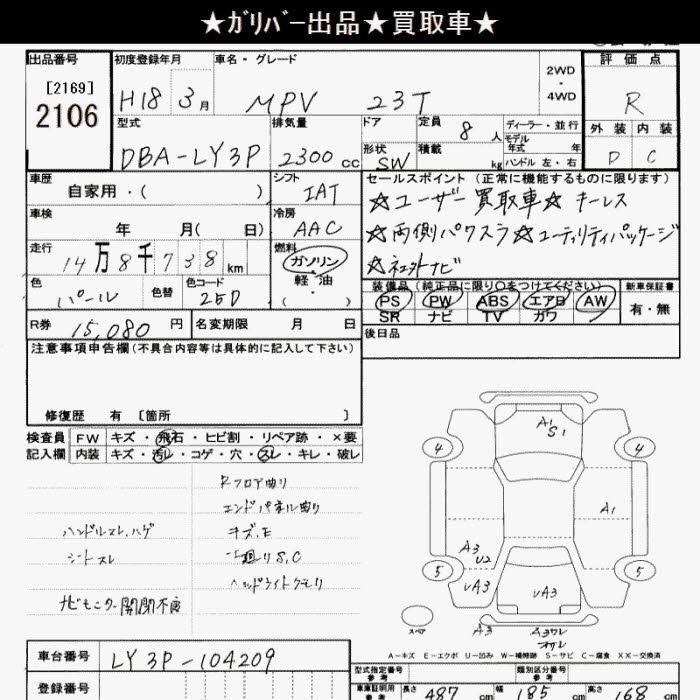 ★ｶﾞﾘﾊﾞｰ出品★買取車★
出品番号 初度登録年月 車名・グレード 評価点
[2169]
2106
H18 3月 MPV 23T 2WD・4WD R
型式 排気量 ドア 定員 8人 ディーラー・並行 外装 内装
モデル年式 年
DBA-LY3P 2300cc 形状 SW 積載 kg ハンドル 左・右 D C
車歴 自家用・( ) シフト IAT セールスポイント (正常に機能するものに限ります)
☆ユーザー買取車☆キーレス
車検 年 月( 日) 冷房 AAC
☆両側パワスラ☆ユーティリティパッケージ
走行 14万8千738km 燃料 ガソリン・軽油・( )
色 パール 色替 色コード 25D
装備品 (純正品に限り○をつけてください) 新車保証書
PS PW ABS エアB AW 有・無
SR ナビ TV カワ
R券 15,080円 名変期限 月 日
後日品
注意事項申告欄(不具合内容等は具体的に記入して下さい)
修復歴 有 [箇所 ]
検査員 FW キズ・飛石・ヒビ割・リペア跡・×要
記入欄 内装 キズ・汚レ・コゲ・穴・スレ・キレ・破レ
Rフロア曲り
エンドパネル曲り
ハンドルスレ、ハゲ キズ、E
シートスレ 下廻りS,C
ヘッドライトクモリ
ナビモニター開閉不良
A1
S1
4 4
A1
A3
U2
5 5
UA3 UA3
スペア A3 A3ワレ
A-キズ E-エクボ U-凹み W-補修跡 S-サビ C-腐食 XX-交換済
車台番号 LY3P-104209
登録番号
型式指定番号 参考 類別区分番号 参考
車庫証明用 参考 長さ 487cm 幅 185cm 高さ 168cm